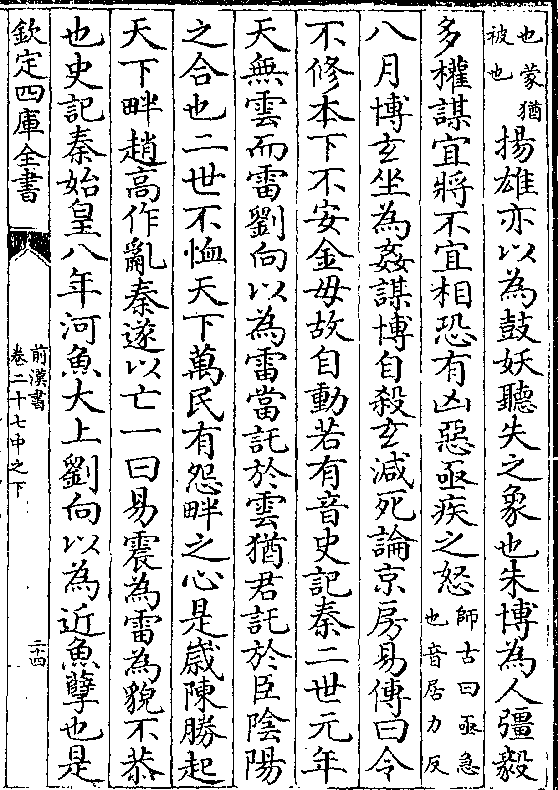 也蒙猶
被也
揚雄亦以為鼓妖聽失之象也朱博為人彊毅
多權謀宜將不宜相恐有凶惡亟疾之怒
師古曰亟急
也音居力反
八月博玄坐為姦謀博自殺玄減死論京房易傳曰令
不修本下不安金毋故自動若有音史記秦二世元年
天無雲而雷劉向以為雷當託於雲猶君託於臣陰陽
之合也二世不恤天下萬民有怨畔之心是歲陳勝起
天下畔趙高作亂秦遂以亡一曰易震為雷為貌不恭
也史記秦始皇八年河魚大上劉向以為近魚孽也是
欽定四庫全書
前漢書
卷二十七中之下
二十四